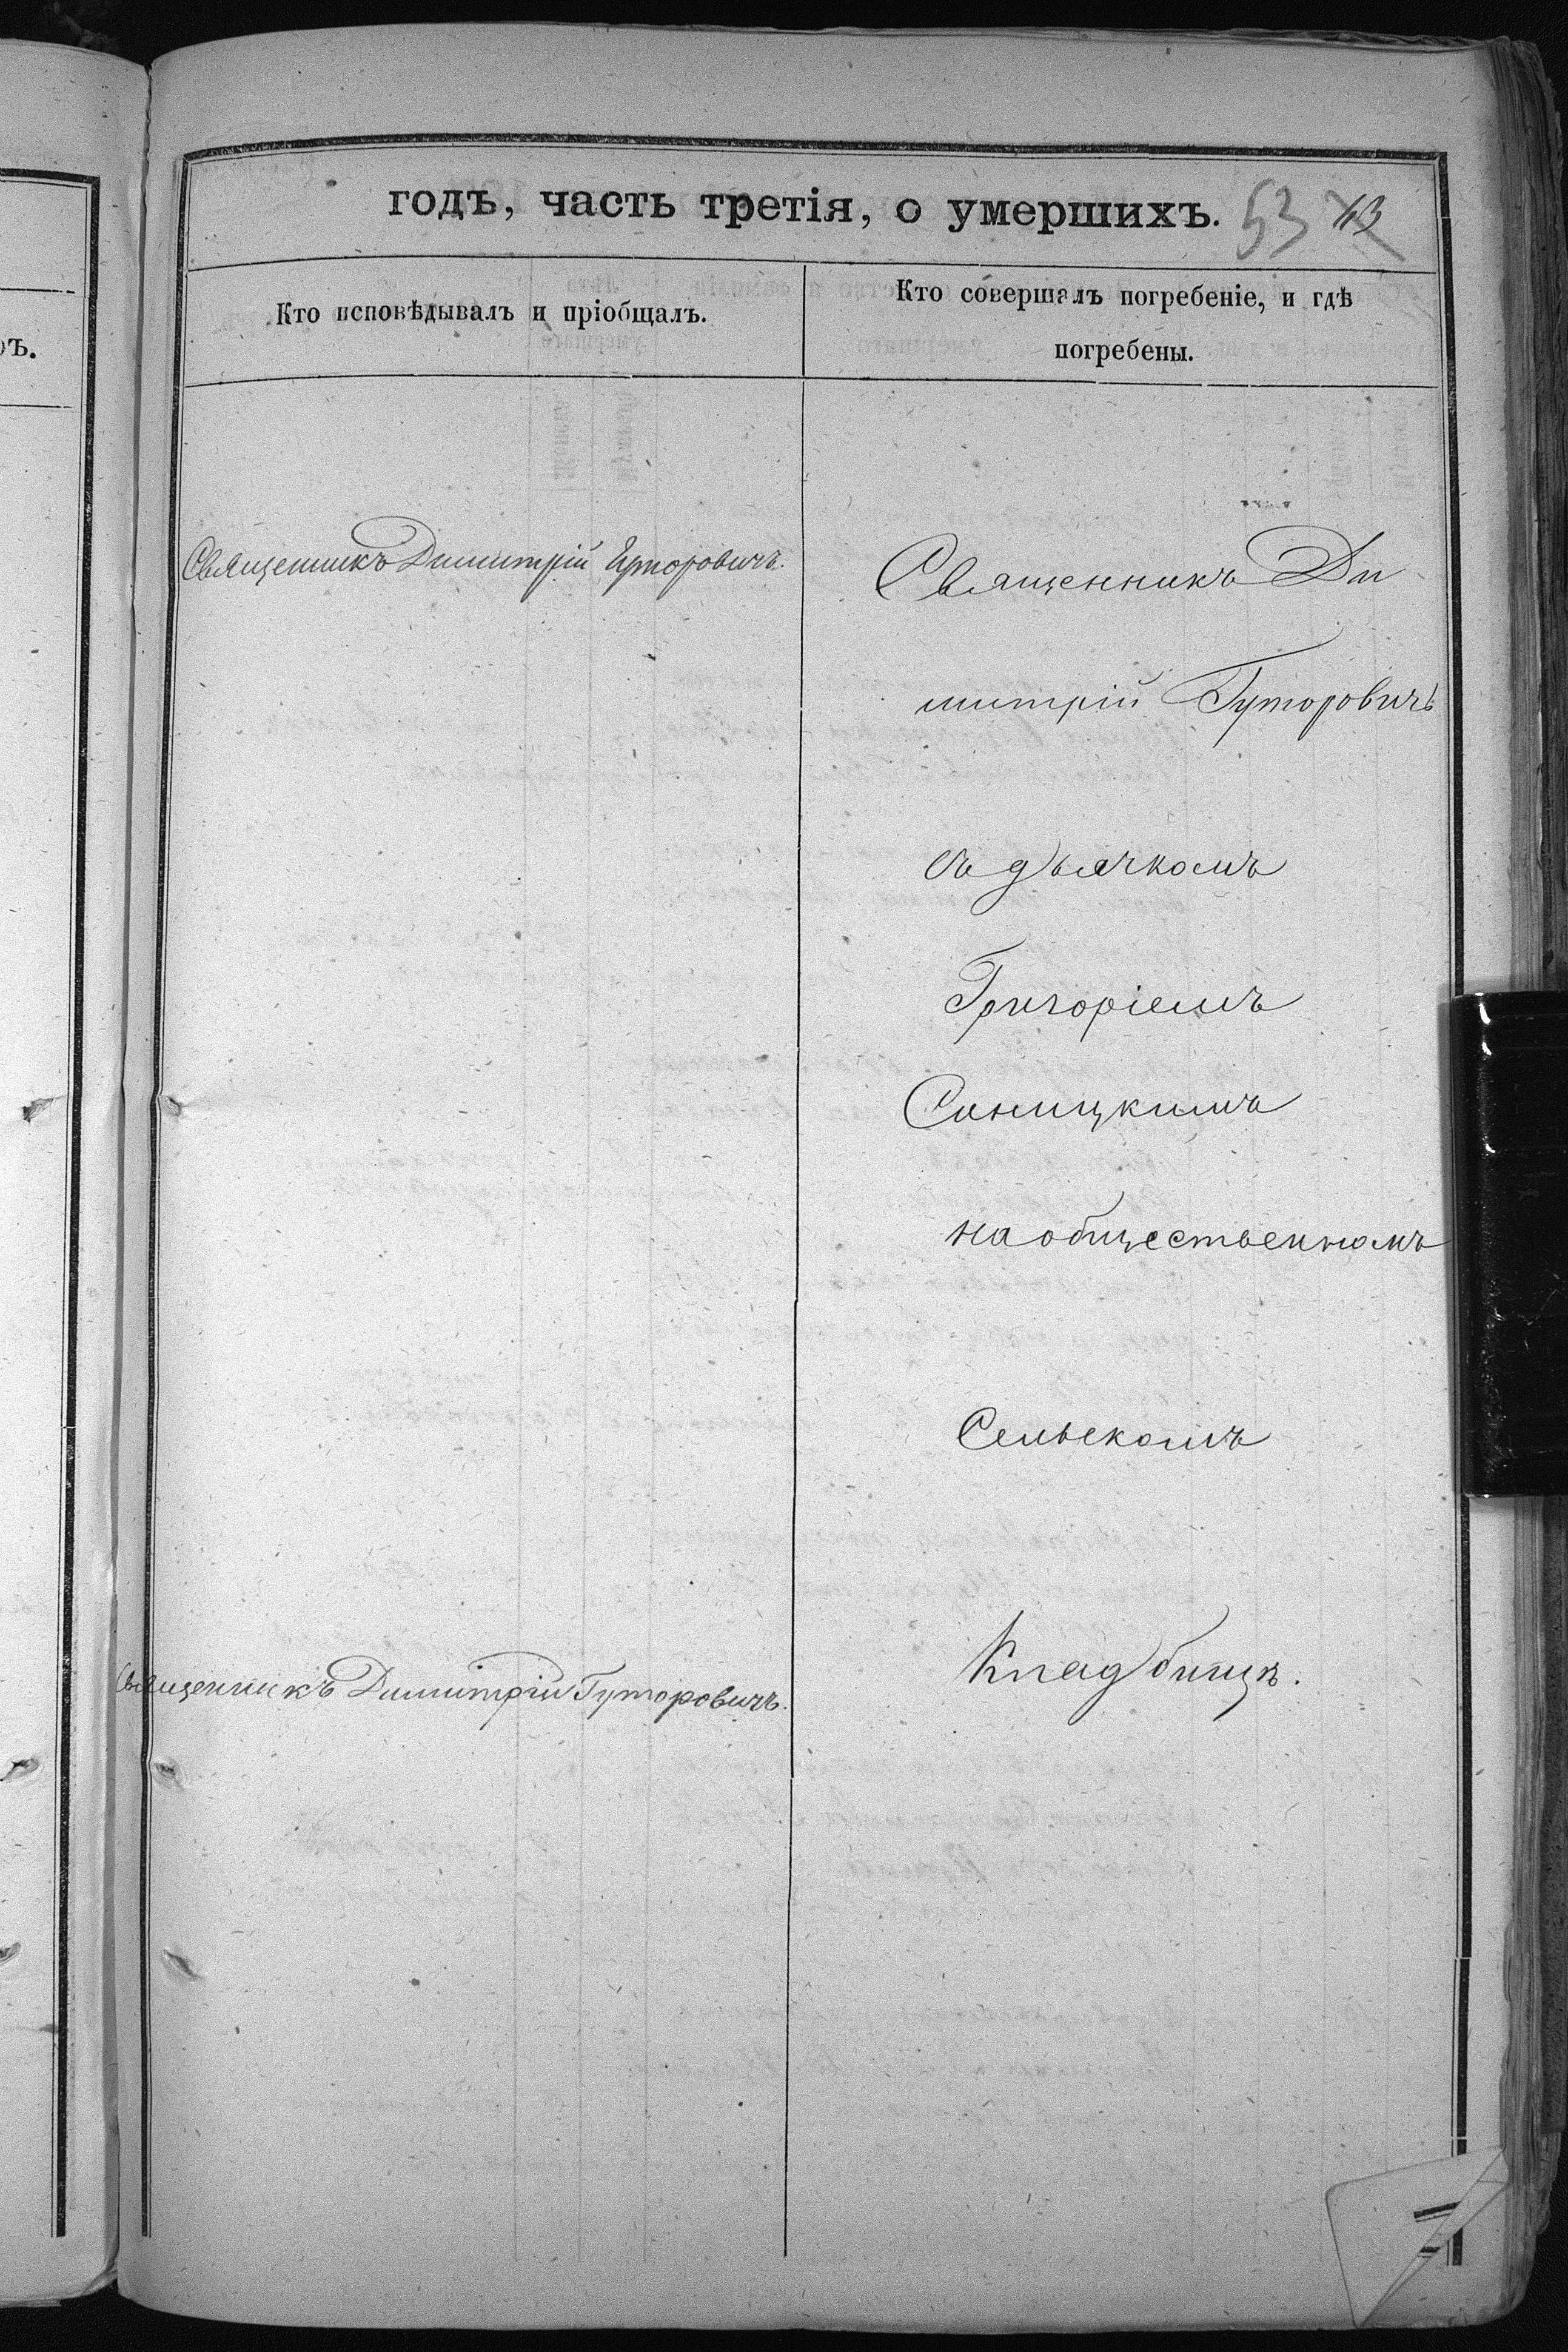 годъ, часть третія, о умершихъ. 53 43
Кто исповѣдывалъ и пріобщалъ.
Кто совершалъ погребеніе, и гдѣ
погребены.
ъ.
Священникъ Димитрій Гуторовичъ.
Священникъ Ди
митрій Гуторовичъ
съ дьячкомъ
Григоріемъ
Синицкимъ
на общественномъ
Сельскомъ
Кладбищѣ.
Священникъ Димитрій Гуторовичъ.